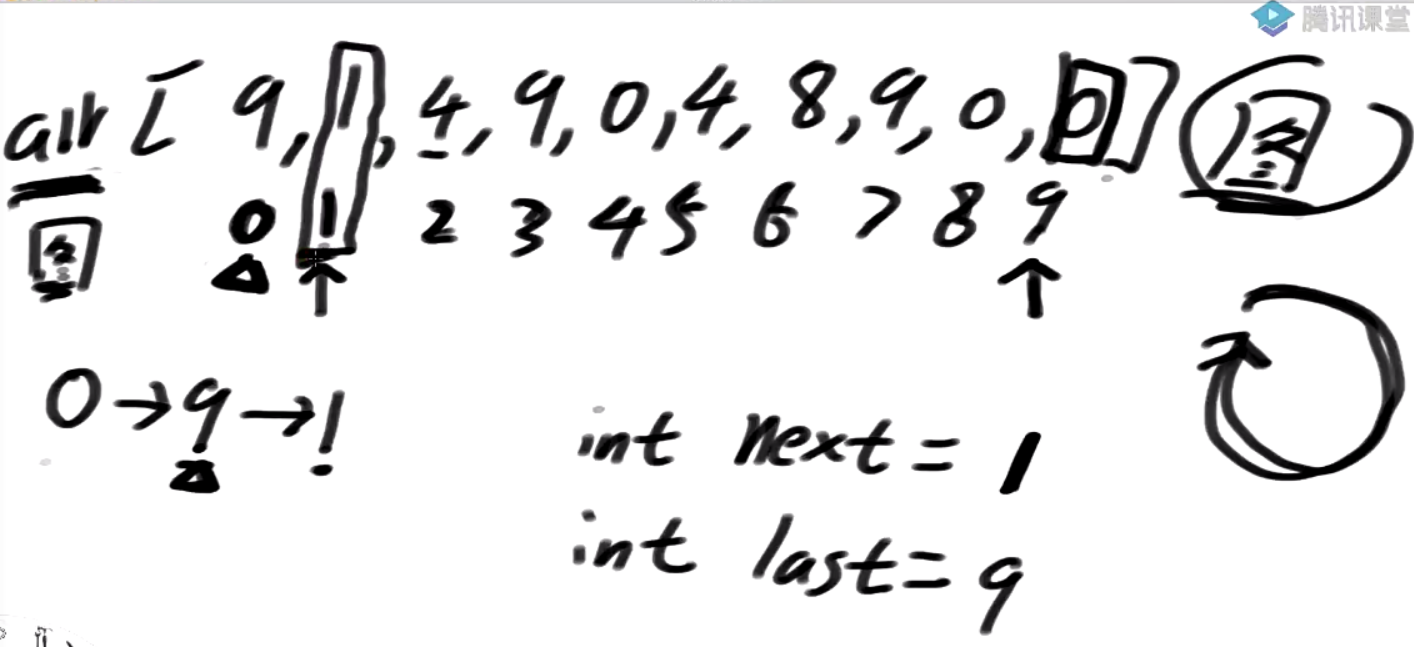 腾讯课堂
arr [ 9, 1, 4, 9, 0, 4, 8, 9, 0, 0 ] 图
0 1 2 3 4 5 6 7 8 9
图
0→9→1
int next = 1
int last = 9